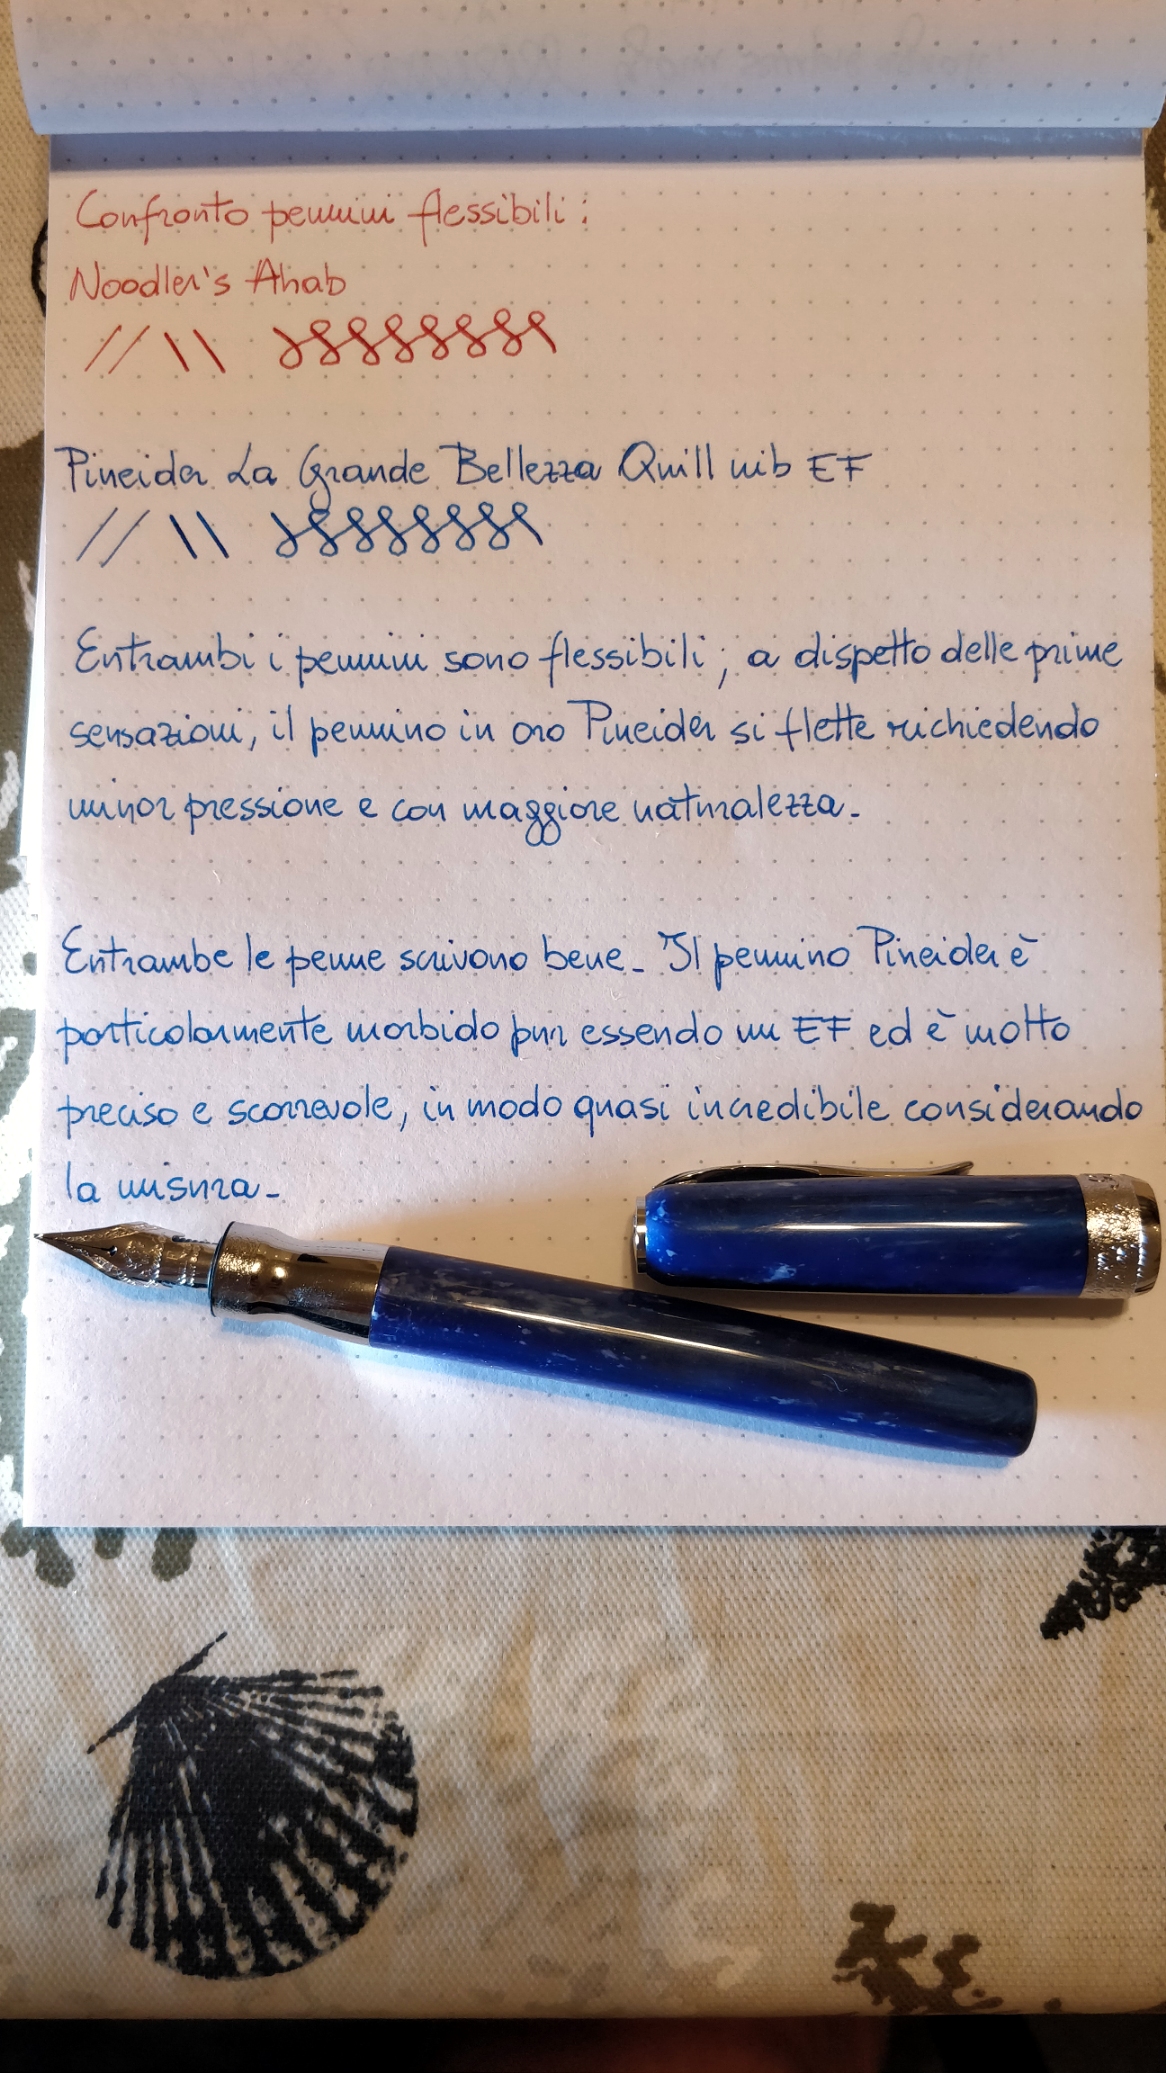 Confronto pennini flessibili:
Noodler's Ahab
Pineider La Grande Bellezza Quill nib EF
Entrambi i pennini sono flessibili; a dispetto delle prime
sensazioni, il pennino in oro Pineider si flette richiedendo
minor pressione e con maggiore naturalezza.
Entrambe le penne scrivono bene. Il pennino Pineider è
particolarmente morbido pur essendo un EF ed è molto
preciso e scorrevole, in modo quasi incredibile considerando
la misura.